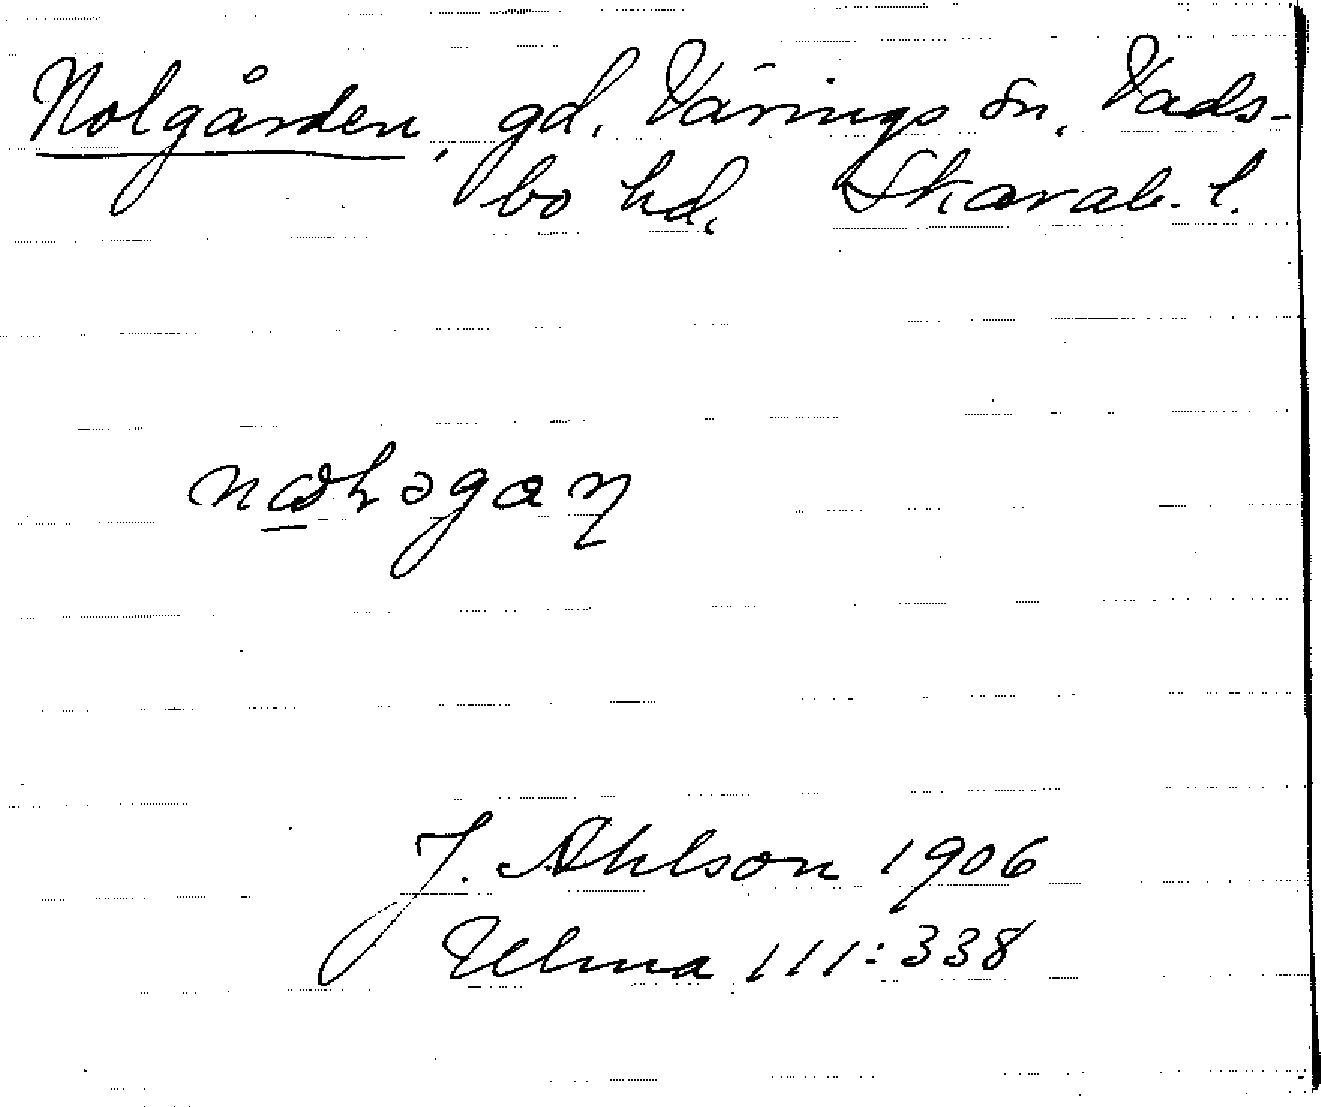 Nolgården, gd. Värings sn, Vads-
bo hd. Skarab. l.
J. Ahlson 1906
Ulma 111:338